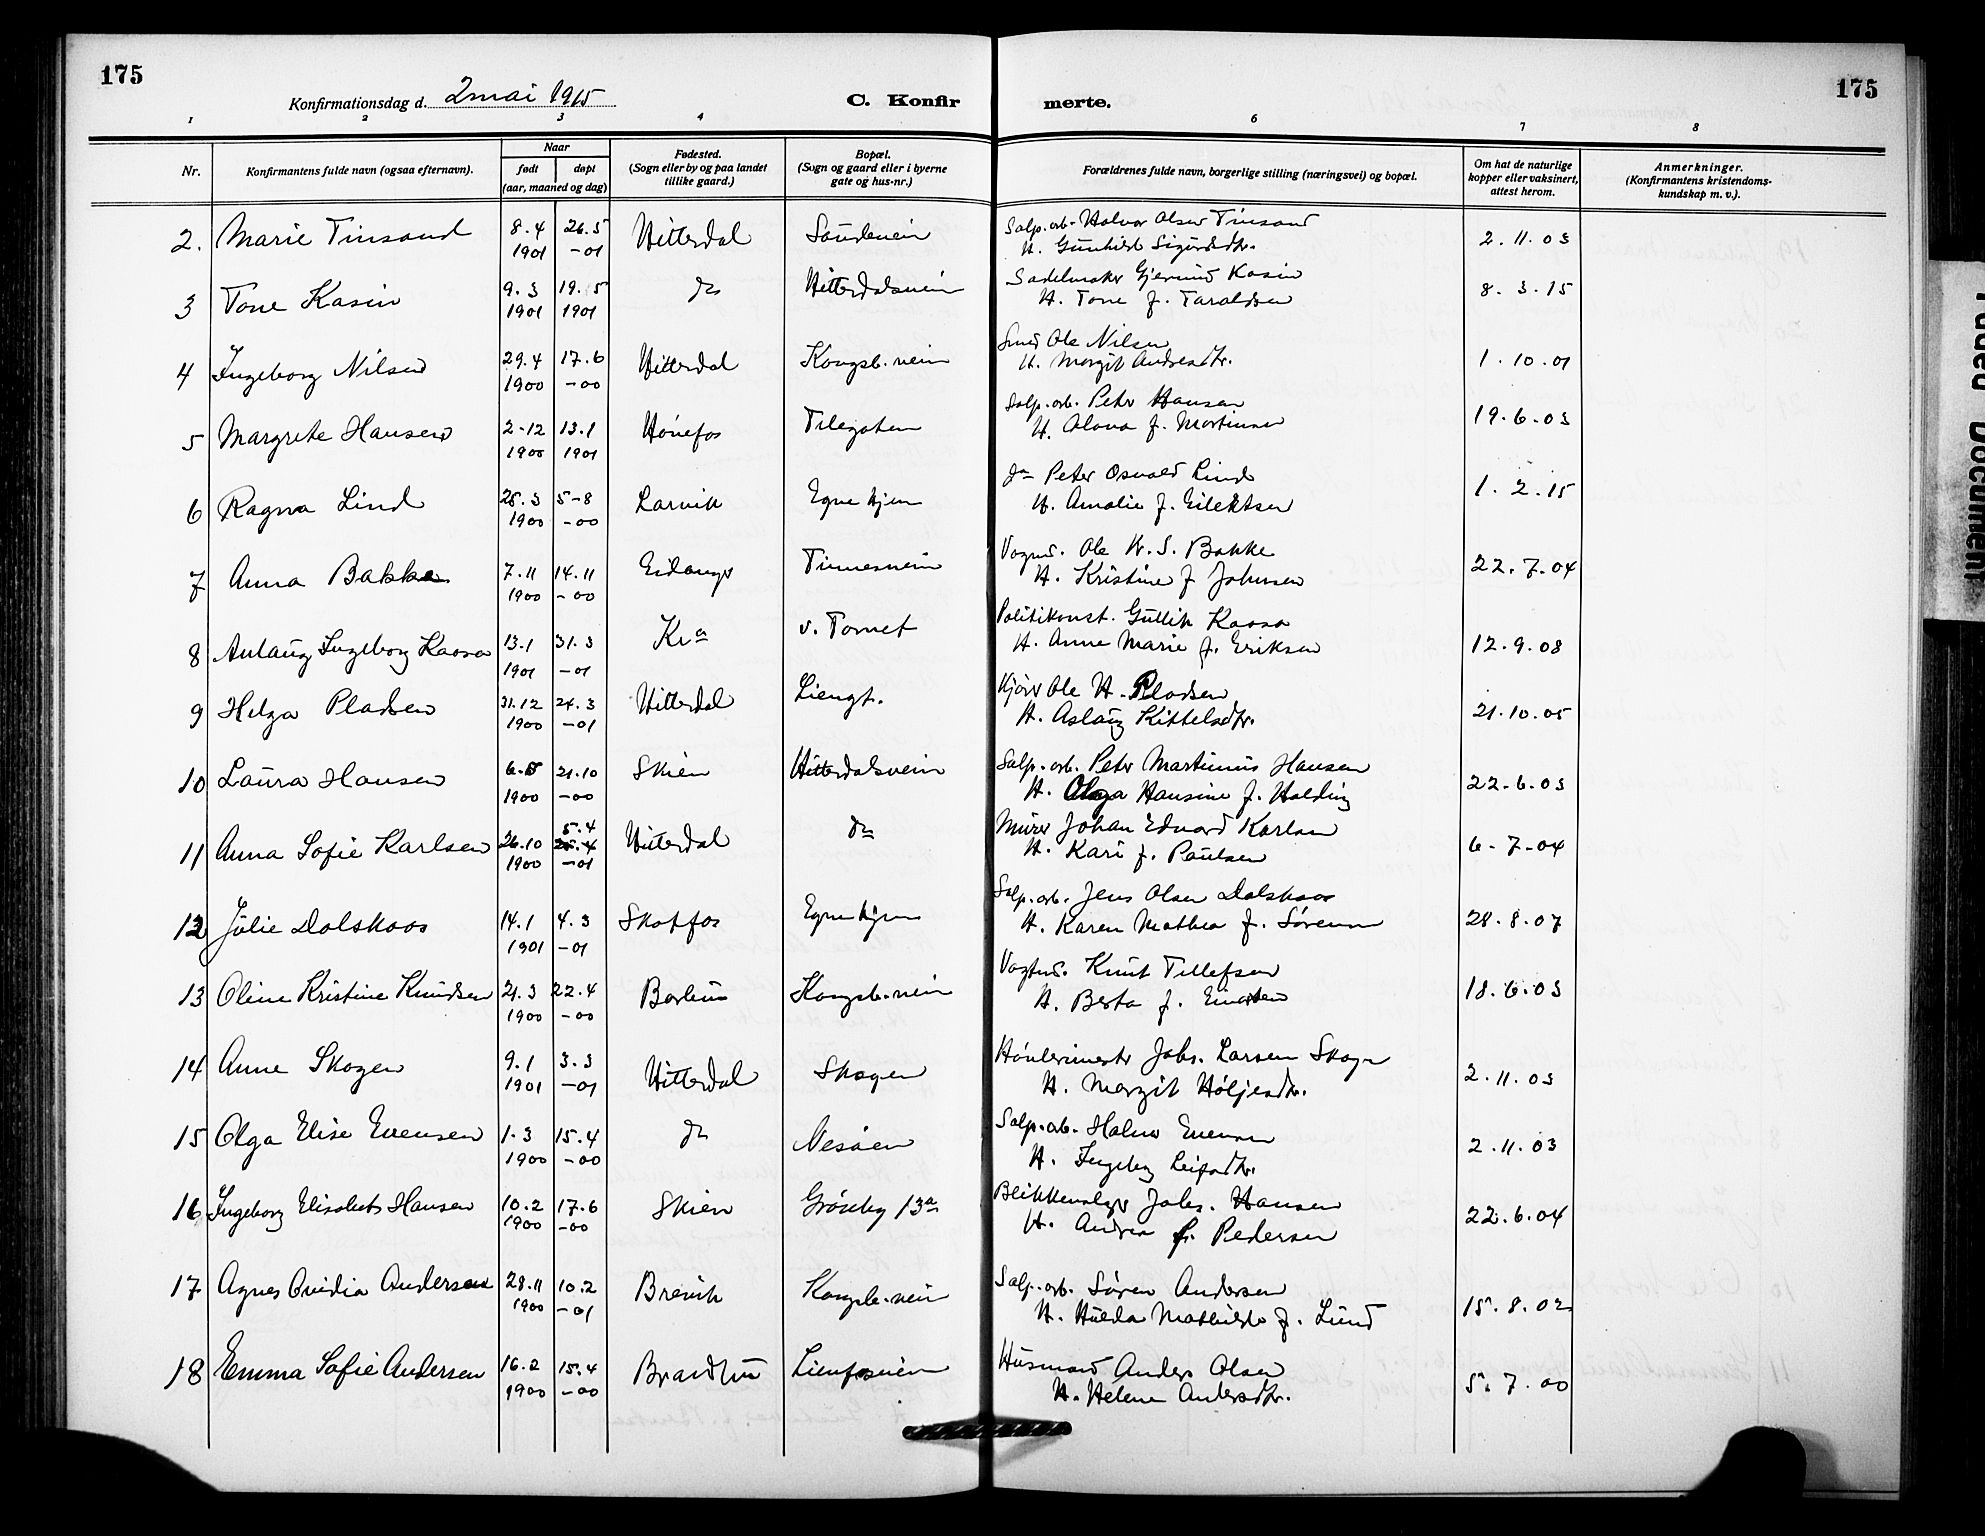 175
175
Konfirmationsdag d. 2 mai 1915
C. Konfir
merte.
1 2 3 4 5 6 7 8
Nr.
Konfirmantens fulde navn (ogsaa efternavn).
Naar
født
døpt
(aar, maaned og dag)
Fødested.
(Sogn eller by og paa landet
tillike gaard.)
Bopæl.
(Sogn og gaard eller i byerne
gate og hus-nr.)
Forældrenes fulde navn, borgerlige stilling (næringsvei) og bopæl.
Om hat de naturlige
kopper eller vaksinert,
attest herom.
Anmerkninger.
(Konfirmantens kristendoms-
kundskap m. v.).
2. Marie Tinsand 8.4 26.5 Hitterdal Saudeveien Salp.arb. Halvor Olsen Tinsand 2.11.03
1901 -01 H. Gunhild Sigurdsdtr.
3 Tone Kasin 9.3 19.5 do Hitterdalsvein Sadelmaker Gjermund Kasin 8.3.15
1901 1901 H. Tone f. Taraldsen
4 Ingeborg Nilsen 29.4 17.6 Hitterdal Kongsb.vein Smed Ole Nilsen 1.10.01
1900 -00 H. Margit Andresdtr.
5 Margrete Hansen 2-12 13.1 Hønefos Tilegaten Salp.arb. Peter Hansen 19.6.03
1900 1901 H. f. Martinsen
6 Ragna Lind 25.3 5-8 Larvik Egne hjem do Peter Osvald Lind 1.2.15
1900 -00 H. Amalie f. Eilertsen
7 Anna Bakke 7.11 14.11 Eidanger Tinnesvein Vognm. Ole K. S. Bakke 22.7.04
1900 -00 H. Kristine f. Johnsen
8 Aslaug Ingeborg Kaasa 13.1 31.3 Kra v. Tornet Politikonst. Gullik Kaasa 12.9.08
1901 -01 H. Anne Marie f. Eriksen
9 Helga Pladsen 31.12 24.3 Hitterdal Liengt. Kjører Ole H. Pladsen 21.10.05
1900 -01 H. Aslaug Kittelsdtr.
10 Laura Hansen 6.5 21.10 Skien Hitterdalsvein Salp.arb. Peter Martinius Hansen 22-6.03
1900 -00 H. Olga Hansine f. Holding
5.4
11 Anna Sofie Karlsen 26.10 25.4 Hitterdal do Murer Johan Edvard Karlsen 6-7-04
1900 -01 H. Kari f. Paulsen
12 Julie Dalskaas 14.1 4.3 Skotfos Egne hjem Salp.arb. Jens Olsen Dalskaas 28.8.07
1901 -01 H. Karen Mathea f. Sørensen
13 Oline Kristine Knudsen 21.3 22.4 Borhus Kongsb.vein Vagtm. Knut Tellefsen 18.6.03
1900 -00 H. Berta f.
14 Anne Skogen 9.1 3.3 Hitterdal Skogen Johs. Larsen Skogen 2.11.03
1901 -01 H. Margit Høljesdtr.
15 Olga Elise Evensen 1.3 15.4 do Nesøen Salp.arb. Halvor Evensen 2.11.03
1900 -00 H. Ingeborg Leifsdtr.
16 Ingeborg Elisabets Hansen 10.2 17.6 Skien Grønby 13a Blikkenslager Johs. Hansen 22.6.04
1900 -00 H. Andrea f. Pedersen
17 Agnes Ovidia Andersen 28.11 10.2 Brevik Kongsb.vein Salp.arb. Søren Andersen 15.8.02
1900 -01 H. Hulda Mathilde f. Lund
18 Emma Sofie Andersen 16.2 15.4 Brandbu Lienfosveien Husmand Anders Olsen 5.7.00
1900 -00 H. Helene Andersdtr.